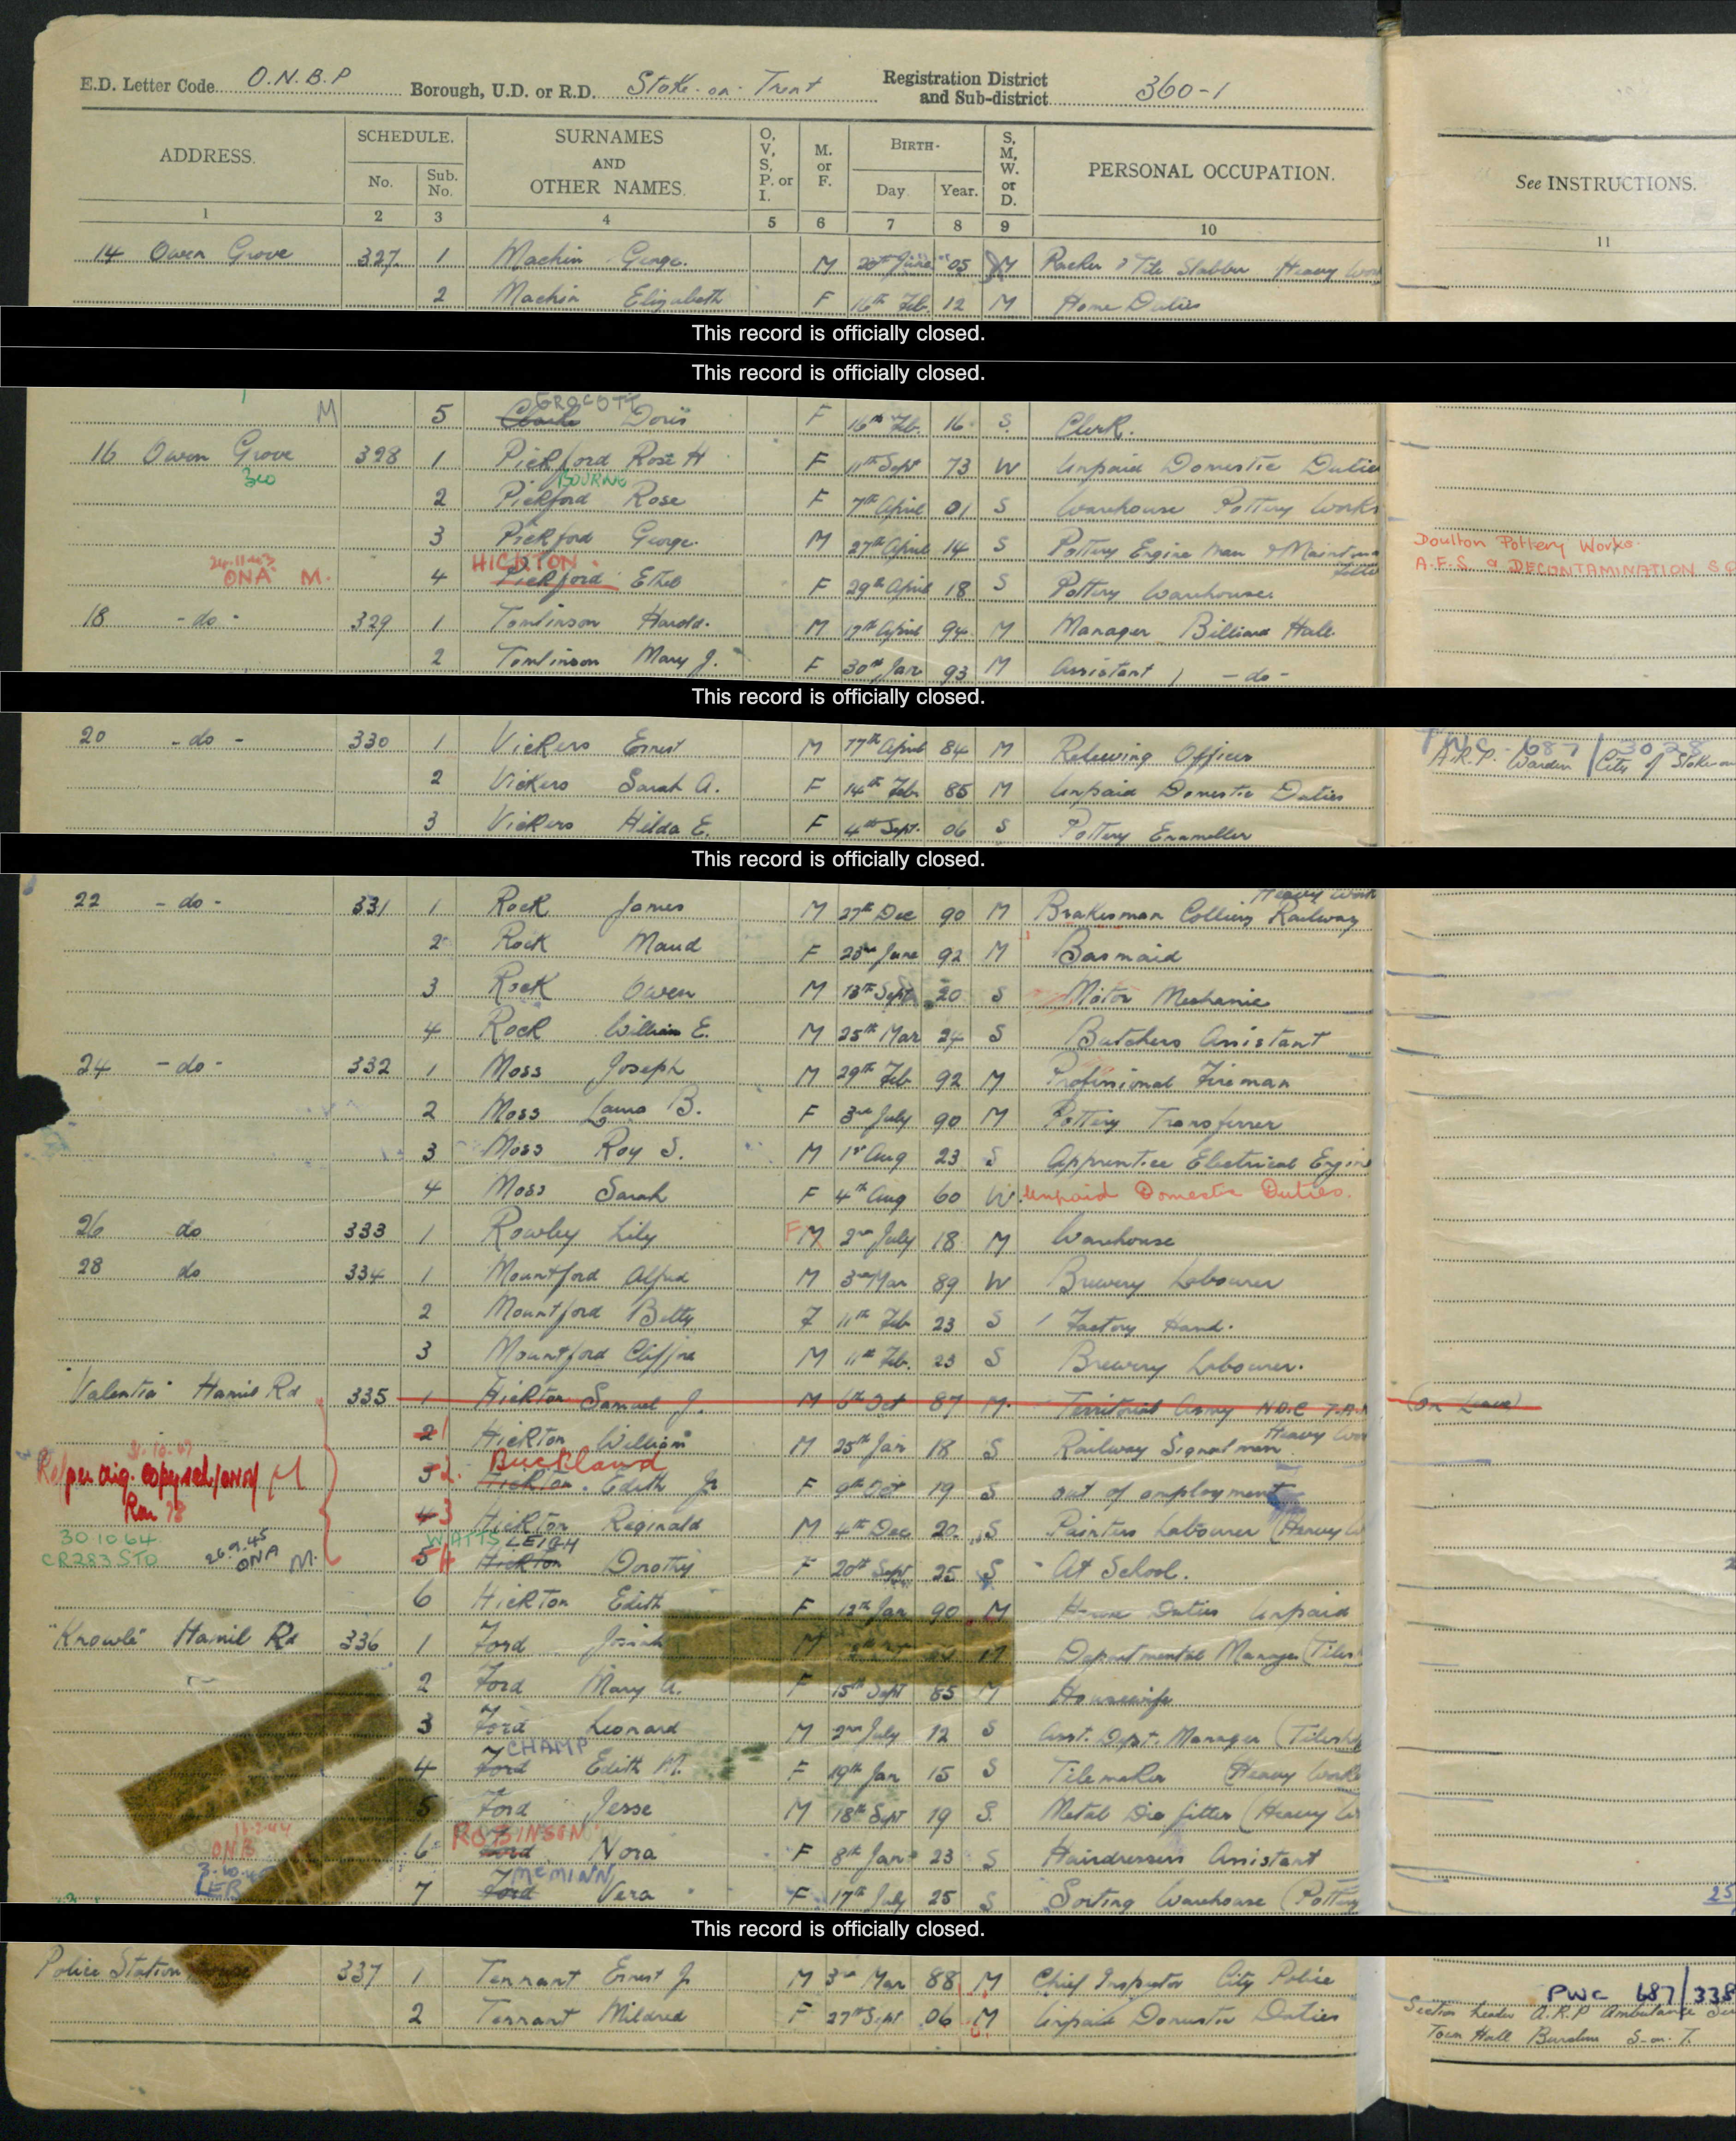 E.D. Letter Code O.N.B.P Borough, U.D. or R.D. Stoke-on-Trent Registration District and Sub-district 360-1
ADDRESS. SCHEDULE. No. Sub. No. SURNAMES AND OTHER NAMES. O, V, S, P. or I. M. or F. BIRTH- Day. Year. S, M, W. or D. PERSONAL OCCUPATION. See INSTRUCTIONS.
1 2 3 4 5 6 7 8 9 10 11
14 Owen Grove 327 1 Machin George. M 20th June 05 M Packer & Tile Slabber Heavy Work
2 Machin Elizabeth F 16th Feb. 12 M Home Duties
This record is officially closed.
This record is officially closed.
GROCOTT
M 5 Clarke Doris F 16th Feb. 16 S. Clerk.
16 Owen Grove 328 1 Pickford Rose H F 11th Sept 73 W Unpaid Domestic Duties
BOURNE
2 Pickford Rose F 7th April 01 S Warehouse Pottery Works
3 Pickford George. M 27th April 14 S Pottery Engine Man & Doulton Pottery Works.
HICKTON. A.F.S. a DECONTAMINATION
ONA M. 4 Pickford Ethel F 29th April 18 S Pottery Warehouse
18 -do- 329 1 Tomlinson Harold. M 17th April 94 M Manager Billiard Hall.
2 Tomlinson Mary J. F 30th Jan 93 M Assistant -do-
This record is officially closed.
20 -do- 330 1 Vickers Ernest M 17th April 84 M Relieving Officer A.R.P. Warden City of Stoke-on
2 Vickers Sarah A. F 14th Feb. 85 M Unpaid Domestic Duties
3 Vickers Hilda E. F 4th Sept. 06 S Pottery Enameller
This record is officially closed.
Heavy Work
22 -do- 331 1 Rock James M 27th Dec 90 M Brakesman Colliery Railway
2 Rock Maud F 23rd June 92 M Barmaid
3 Rock Owen M 13th Sept 20 S Motor Mechanic
4 Rock William E. M 25th Mar 24 S Butchers Assistant
24 -do- 332 1 Moss Joseph M 29th Feb 92 M Professional Fireman
2 Moss Laura B. F 3rd July 90 M Pottery Transferrer
3 Moss Roy S. M 1st Aug 23 S Apprentice Electrical Engin
4 Moss Sarah F 4th Aug 60 W. Unpaid Domestic Duties.
26 do 333 1 Rowley Lily F M 2nd July 18 M Warehouse
28 do 334 1 Mountford Alfred M 3rd Mar 89 W Brewery Labourer
2 Mountford Betty F 11th Feb 23 S Factory Hand.
3 Mountford Clifford M 11th Feb. 23 S Brewery Labourer.
"Valentia" Hamil Rd 335 1 Hickton Samuel J. M 6th Oct 87 M. Territorial Army N.D.C T.A. (On Leave)
2 1 Hickton William M 25th Jan 18 S Railway Signalman Heavy Wor
Buckland
M 3 2. Hickton. Edith F 9th Oct 19 S out of employment
4 3 Hickton Reginald M 4th Dec 20. S Painters Labourer (Heavy W
30.10.64 WATTS LEIGH
CR283 STO 26.9.45 ONA M. 5 4 Hickton Dorothy F 20th Sept 25 S At School.
6 Hickton Edith F 12th Jan 90 M Home Duties Unpaid
"Knowle" Hamil Rd 336 1 Ford Josiah M M Departmental Manager (Tiles
2 Ford Mary A. F 15th Sept 85 M Housewife
3 Ford Leonard M 2nd July 12 S Asst. Dept. Manager
CHAMP
4 Ford Edith M. F 19th Jan 15 S Tilemaker (Heavy Work
5 Ford Jesse M 18th Sept 19 S. Metal Die fitter (Heavy W
ROBINSON
ONA 6 Ford Nora F 8th Jan 23 S Hairdressers Assistant
McMINN
7 Ford Vera F 17th July 25 S Sorting Warehouse (Pottery 25
This record is officially closed.
Police Station House 337 1 Tennant Ernest J M 3rd Mar 88 M Chief Inspector City Police PWC 687/338
2 Tennant Mildred F 27th Sept 06 M Unpaid Domestic Duties Section Leader A.R.P Ambulance
Town Hall Burslem S-on-T.